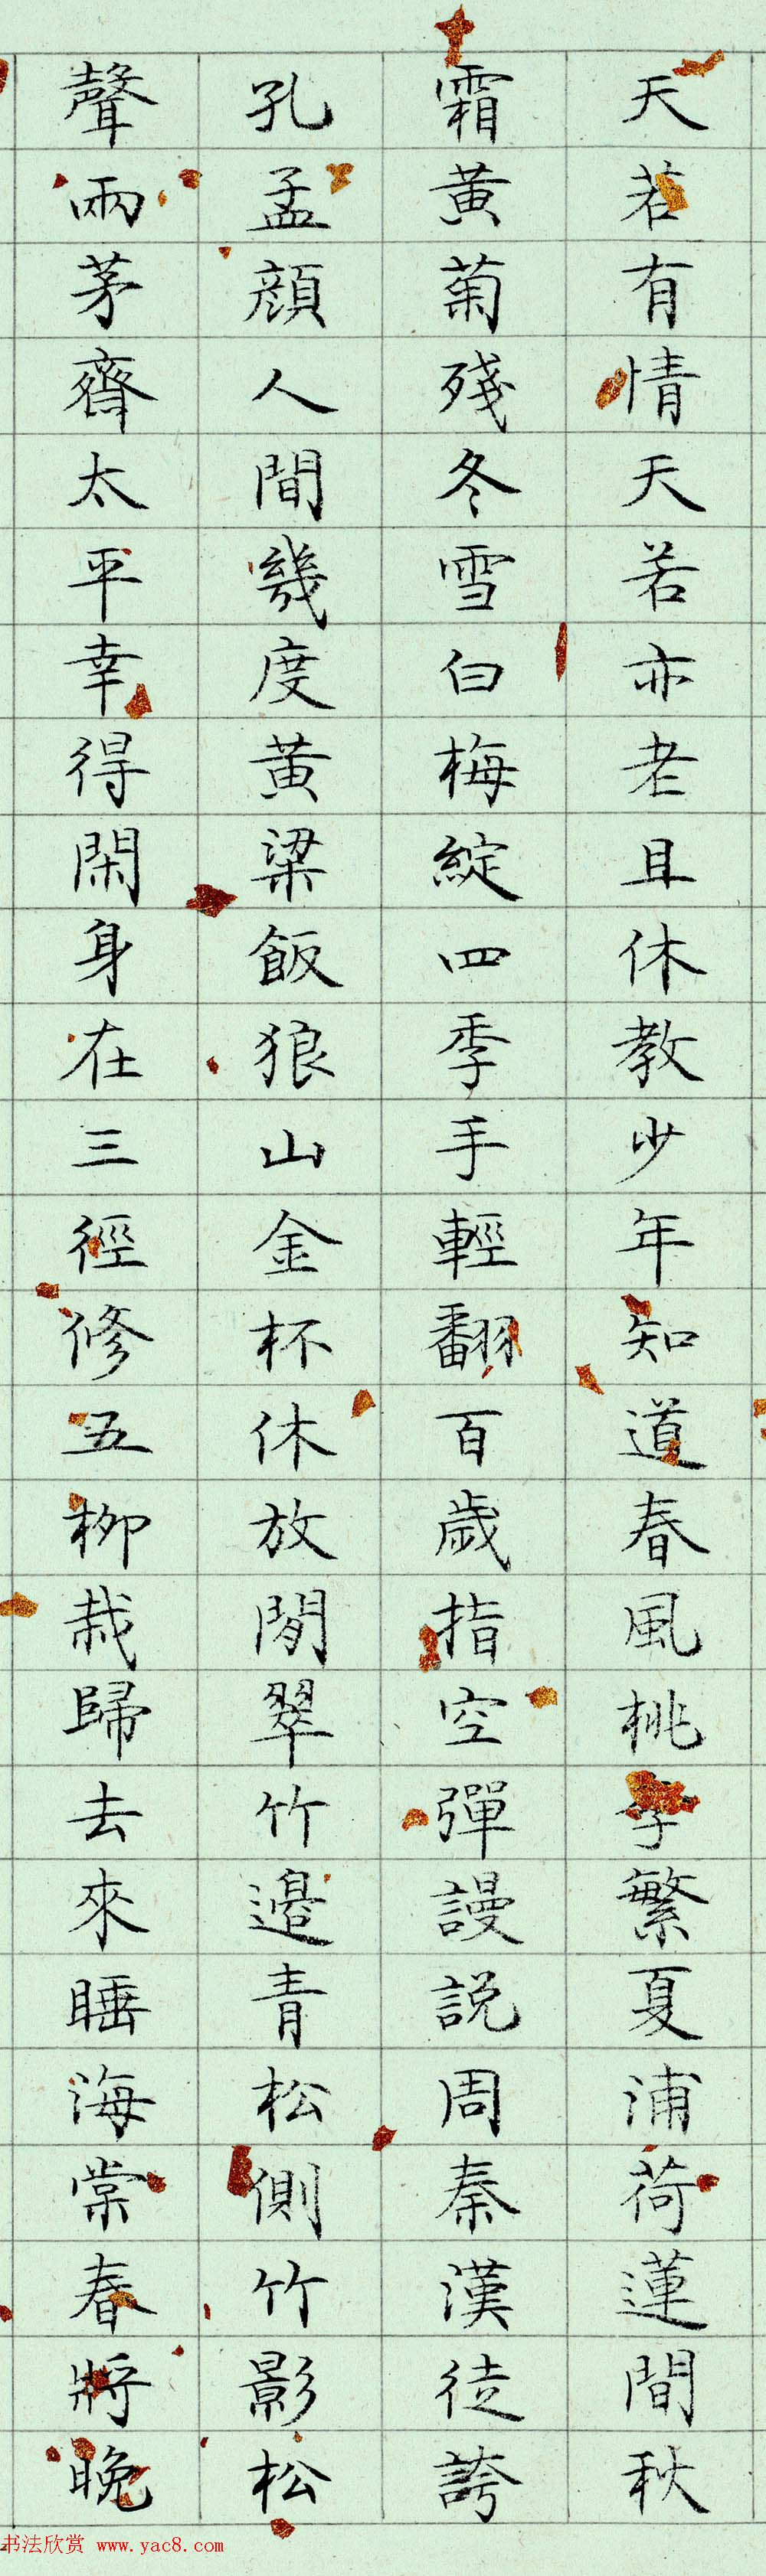 天若有情天若亦老且休教少年知道春風桃李繁夏浦荷蓮間秋
霜黃菊殘冬雪白梅綻四季手輕翻百歲指空彈謾説周秦漢徒誇
孔孟顏人間幾度黃粱飯狼山金杯休放閒翠竹邊青松側竹影松
聲兩茅齋太平幸得閑身在三徑修五柳栽歸去來睡海棠春將晚
书法欣赏 www.yac8.com